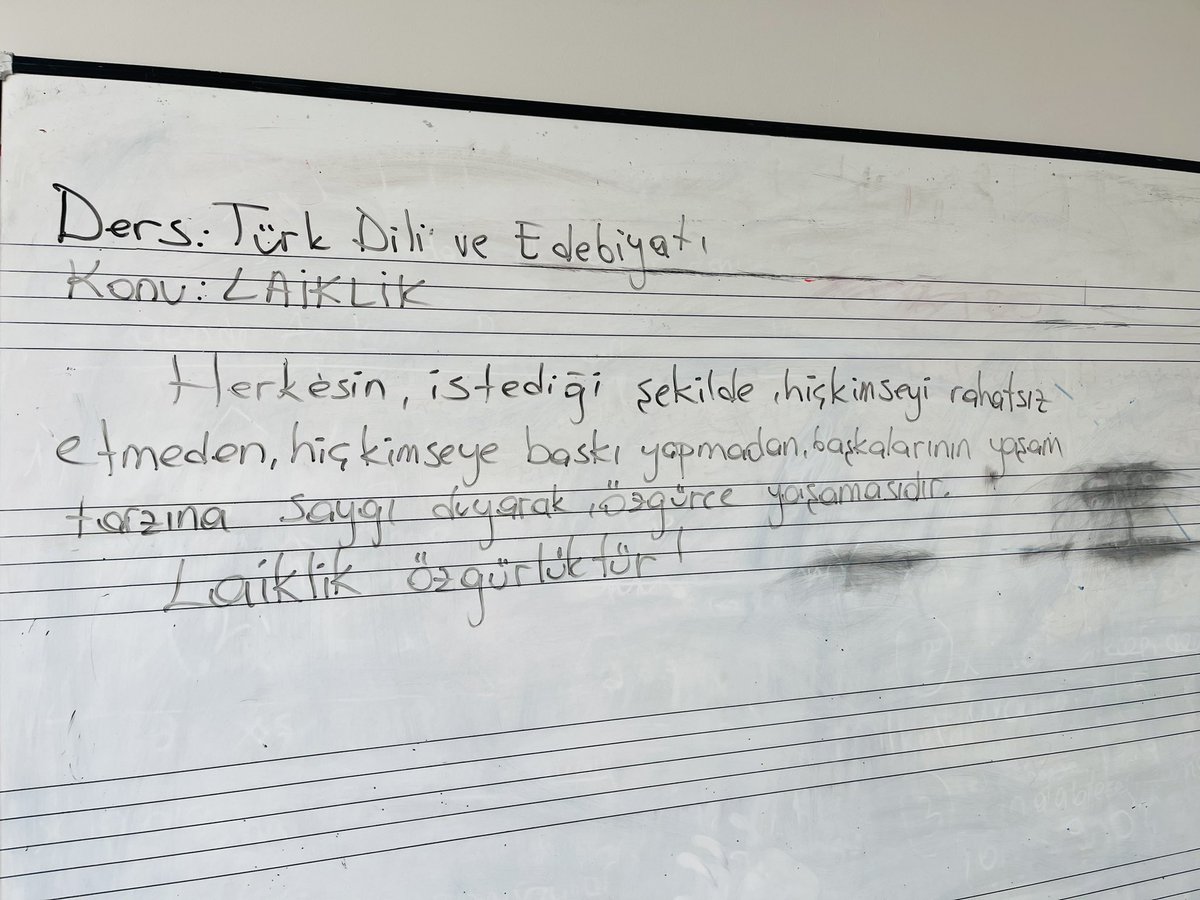 Ders: Türk Dili ve Edebiyatı
Konu: LAİKLİK
Herkesin, istediği şekilde, hiçkimseyi rahatsız
etmeden, hiçkimseye baskı yapmadan, başkalarının yaşam
tarzına saygı duyarak, özgürce yaşamasıdır.
Laiklik özgürlüktür!